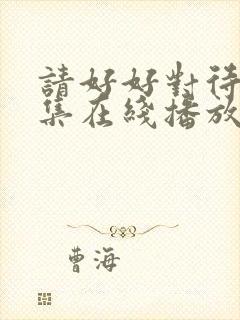 請好好對待
集在綫播放
曹海